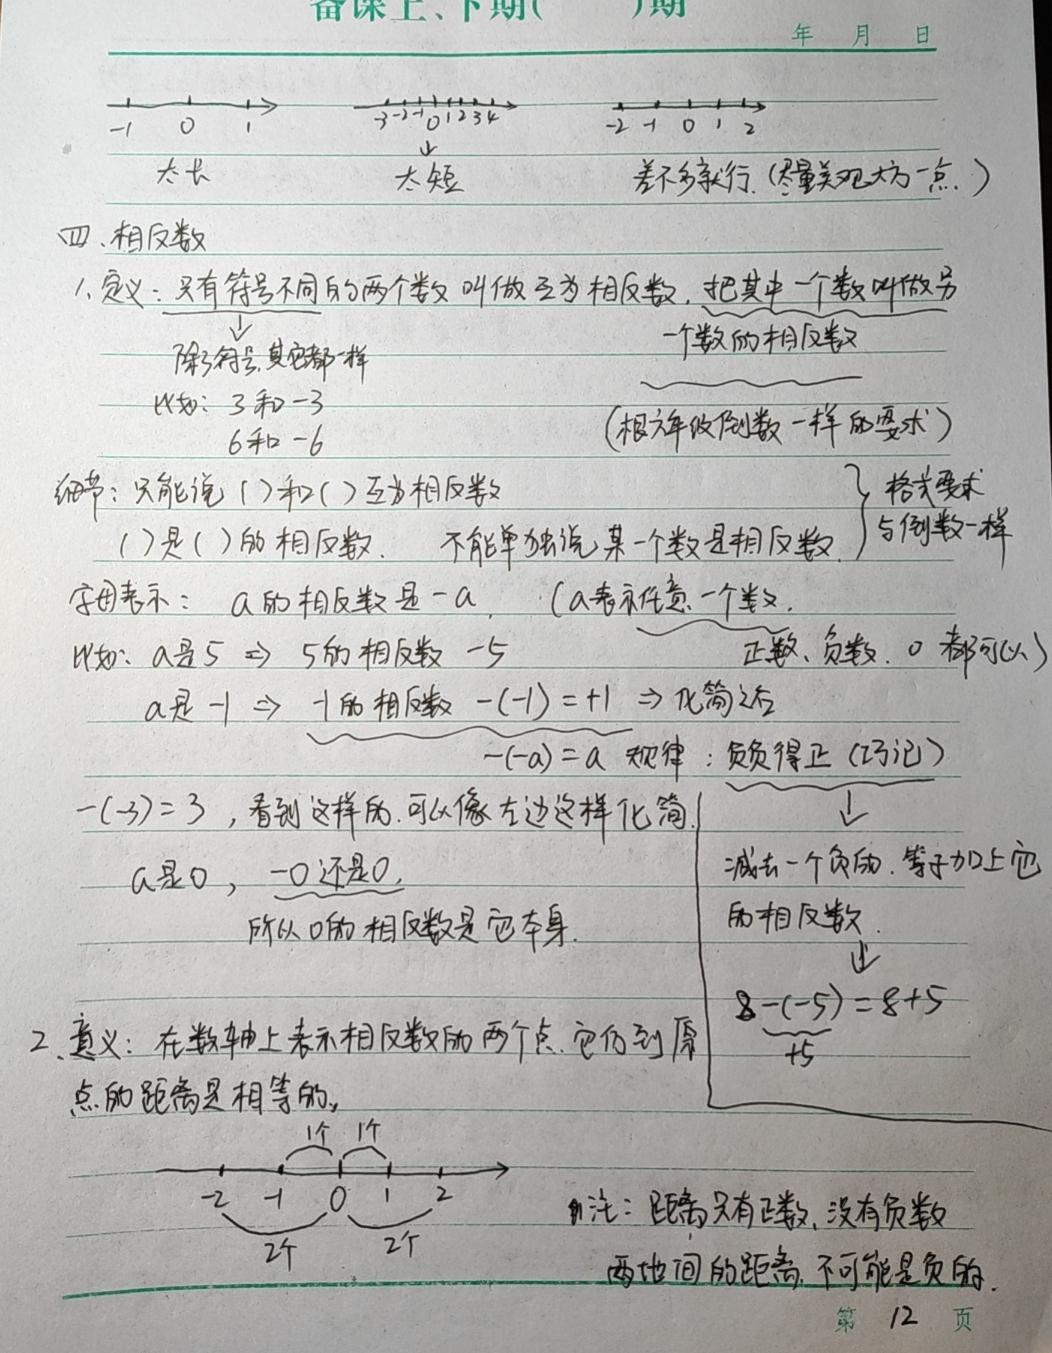 备课上、下期(　　)期
年 月 日
-1 0 1
-3 -2 -1 0 1 2 3 4
-2 -1 0 1 2
太长
太短
差不多就行.(尽量美观大方一点.)
四、相反数
1、定义：只有符号不同的两个数叫做互为相反数，把其中一个数叫做另
一个数的相反数
除了符号，其它都一样
比如：3和-3
6和-6
(根六年级倒数一样的要求)
细节：只能说( )和( )互为相反数
( )是( )的相反数. 不能单独说某一个数是相反数.
格式要求
与倒数一样
字母表示：a的相反数是-a. (a表示任意一个数.
正数、负数.0都可以)
比如：a是5⇒5的相反数 -5
a是-1⇒ -1的相反数 -(-1)=+1⇒化简之后
-(-a)=a 规律：负负得正(巧记)
-(-3)=3，看到这样的.可以像左边这样化简.
a是0，-0还是0.
所以0的相反数是它本身.
减去一个负的.等于加上它
的相反数.
8-(-5)=8+5
+5
2、意义：在数轴上表示相反数的两个点.它们到原
点的距离是相等的。
1个 1个
-2 -1 0 1 2
2个 2个
注：距离只有正数，没有负数
两地间的距离.不可能是负的.
第 12 页